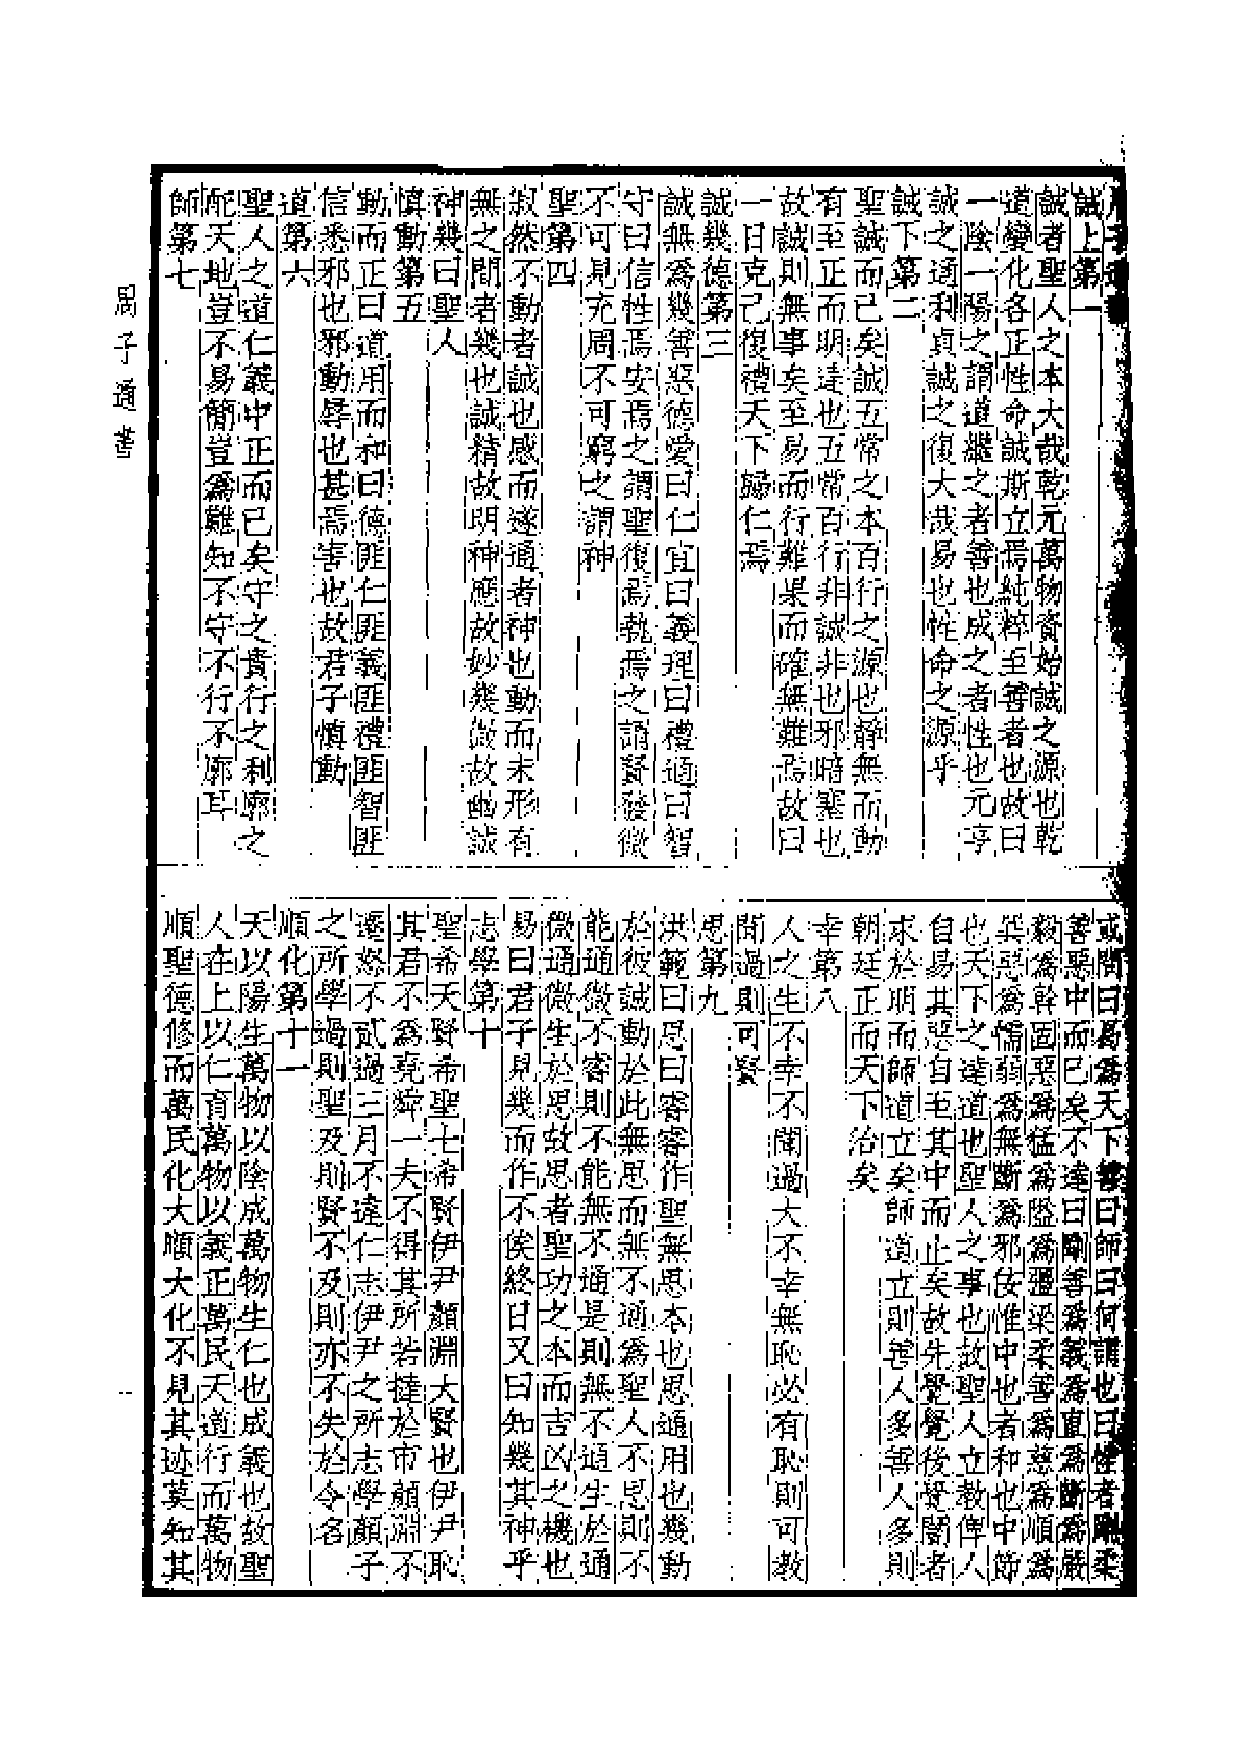 周子通書
誠上第一
誠者聖人之本大哉乾元萬物資始誠之源也乾
道變化各正性命誠斯立焉純粹至善者也故曰
一陰一陽之謂道繼之者善也成之者性也元亨
誠之通利貞誠之復大哉易也性命之源乎
誠下第二
聖誠而已矣誠五常之本百行之源也靜無而動
有至正而明達也五常百行非誠非也邪暗塞也
故誠則無事矣至易而行難果而確無難焉故曰
一日克己復禮天下歸仁焉
誠幾德第三
誠無爲幾善惡德愛曰仁宜曰義理曰禮通曰智
守曰信性焉安焉之謂聖復焉執焉之謂賢發微
不可見充周不可窮之謂神
聖第四
寂然不動者誠也感而遂通者神也動而未形有
無之間者幾也誠精故明神應故妙幾微故幽誠
神幾曰聖人
慎動第五
動而正曰道用而和曰德匪仁匪義匪禮匪智匪
信悉邪也邪動辱也甚焉害也故君子慎動
道第六
聖人之道仁義中正而已矣守之貴行之利廓之
配天地豈不易簡豈爲難知不守不行不廓耳
師第七
或問曰曷爲天下善曰師曰何謂也曰性者剛柔
善惡中而已矣不達曰剛善爲義爲直爲斷爲嚴
毅爲幹固惡爲猛爲隘爲彊梁柔善爲慈爲順爲
巽惡爲懦弱爲無斷爲邪佞惟中也者和也中節
也天下之達道也聖人之事也故聖人立教俾人
自易其惡自至其中而止矣故先覺覺後覺闇者
求於明而師道立矣師道立則善人多善人多則
朝廷正而天下治矣
幸第八
人之生不幸不聞過大不幸無恥必有恥則可教
聞過則可賢
思第九
洪範曰思曰睿睿作聖無思本也思通用也幾動
於彼誠動於此無思而無不通爲聖人不思則不
能通微不睿則不能無不通是則無不通生於通
微通微生於思故思者聖功之本而吉凶之機也
易曰君子見幾而作不俟終日又曰知幾其神乎
志學第十
聖希天賢希聖士希賢伊尹顏淵大賢也伊尹恥
其君不爲堯舜一夫不得其所若撻於市顏淵不
遷怒不貳過三月不違仁志伊尹之所志學顏子
之所學過則聖及則賢不及則亦不失於令名
順化第十一
天以陽生萬物以陰成萬物生仁也成義也故聖
人在上以仁育萬物以義正萬民天道行而萬物
順聖德修而萬民化大順大化不見其迹莫知其
周子通書